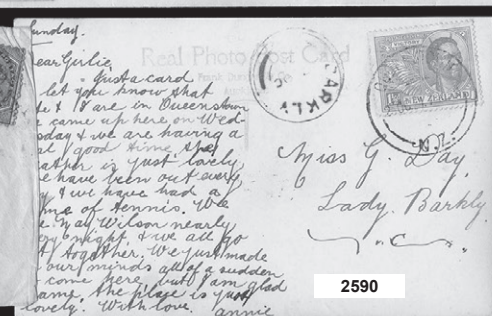 Sunday.
Dear Girlie
Just a card
let you know that
& I are in Queenstown
came up here on Wed-
sday & we are having a
good time the
weather is just lovely
have been out every
& we have had a
of tennis. We
Wilson nearly
night, & we all go
together. We just made
our minds all of a sudden
come here, but I am glad
came, the place is just
lovely. With love. Annie
Real Photo Post Card
Frank
BARKLY
NEW ZEALAND
N.Z.
Miss G. Day,
Lady Barkly
2590